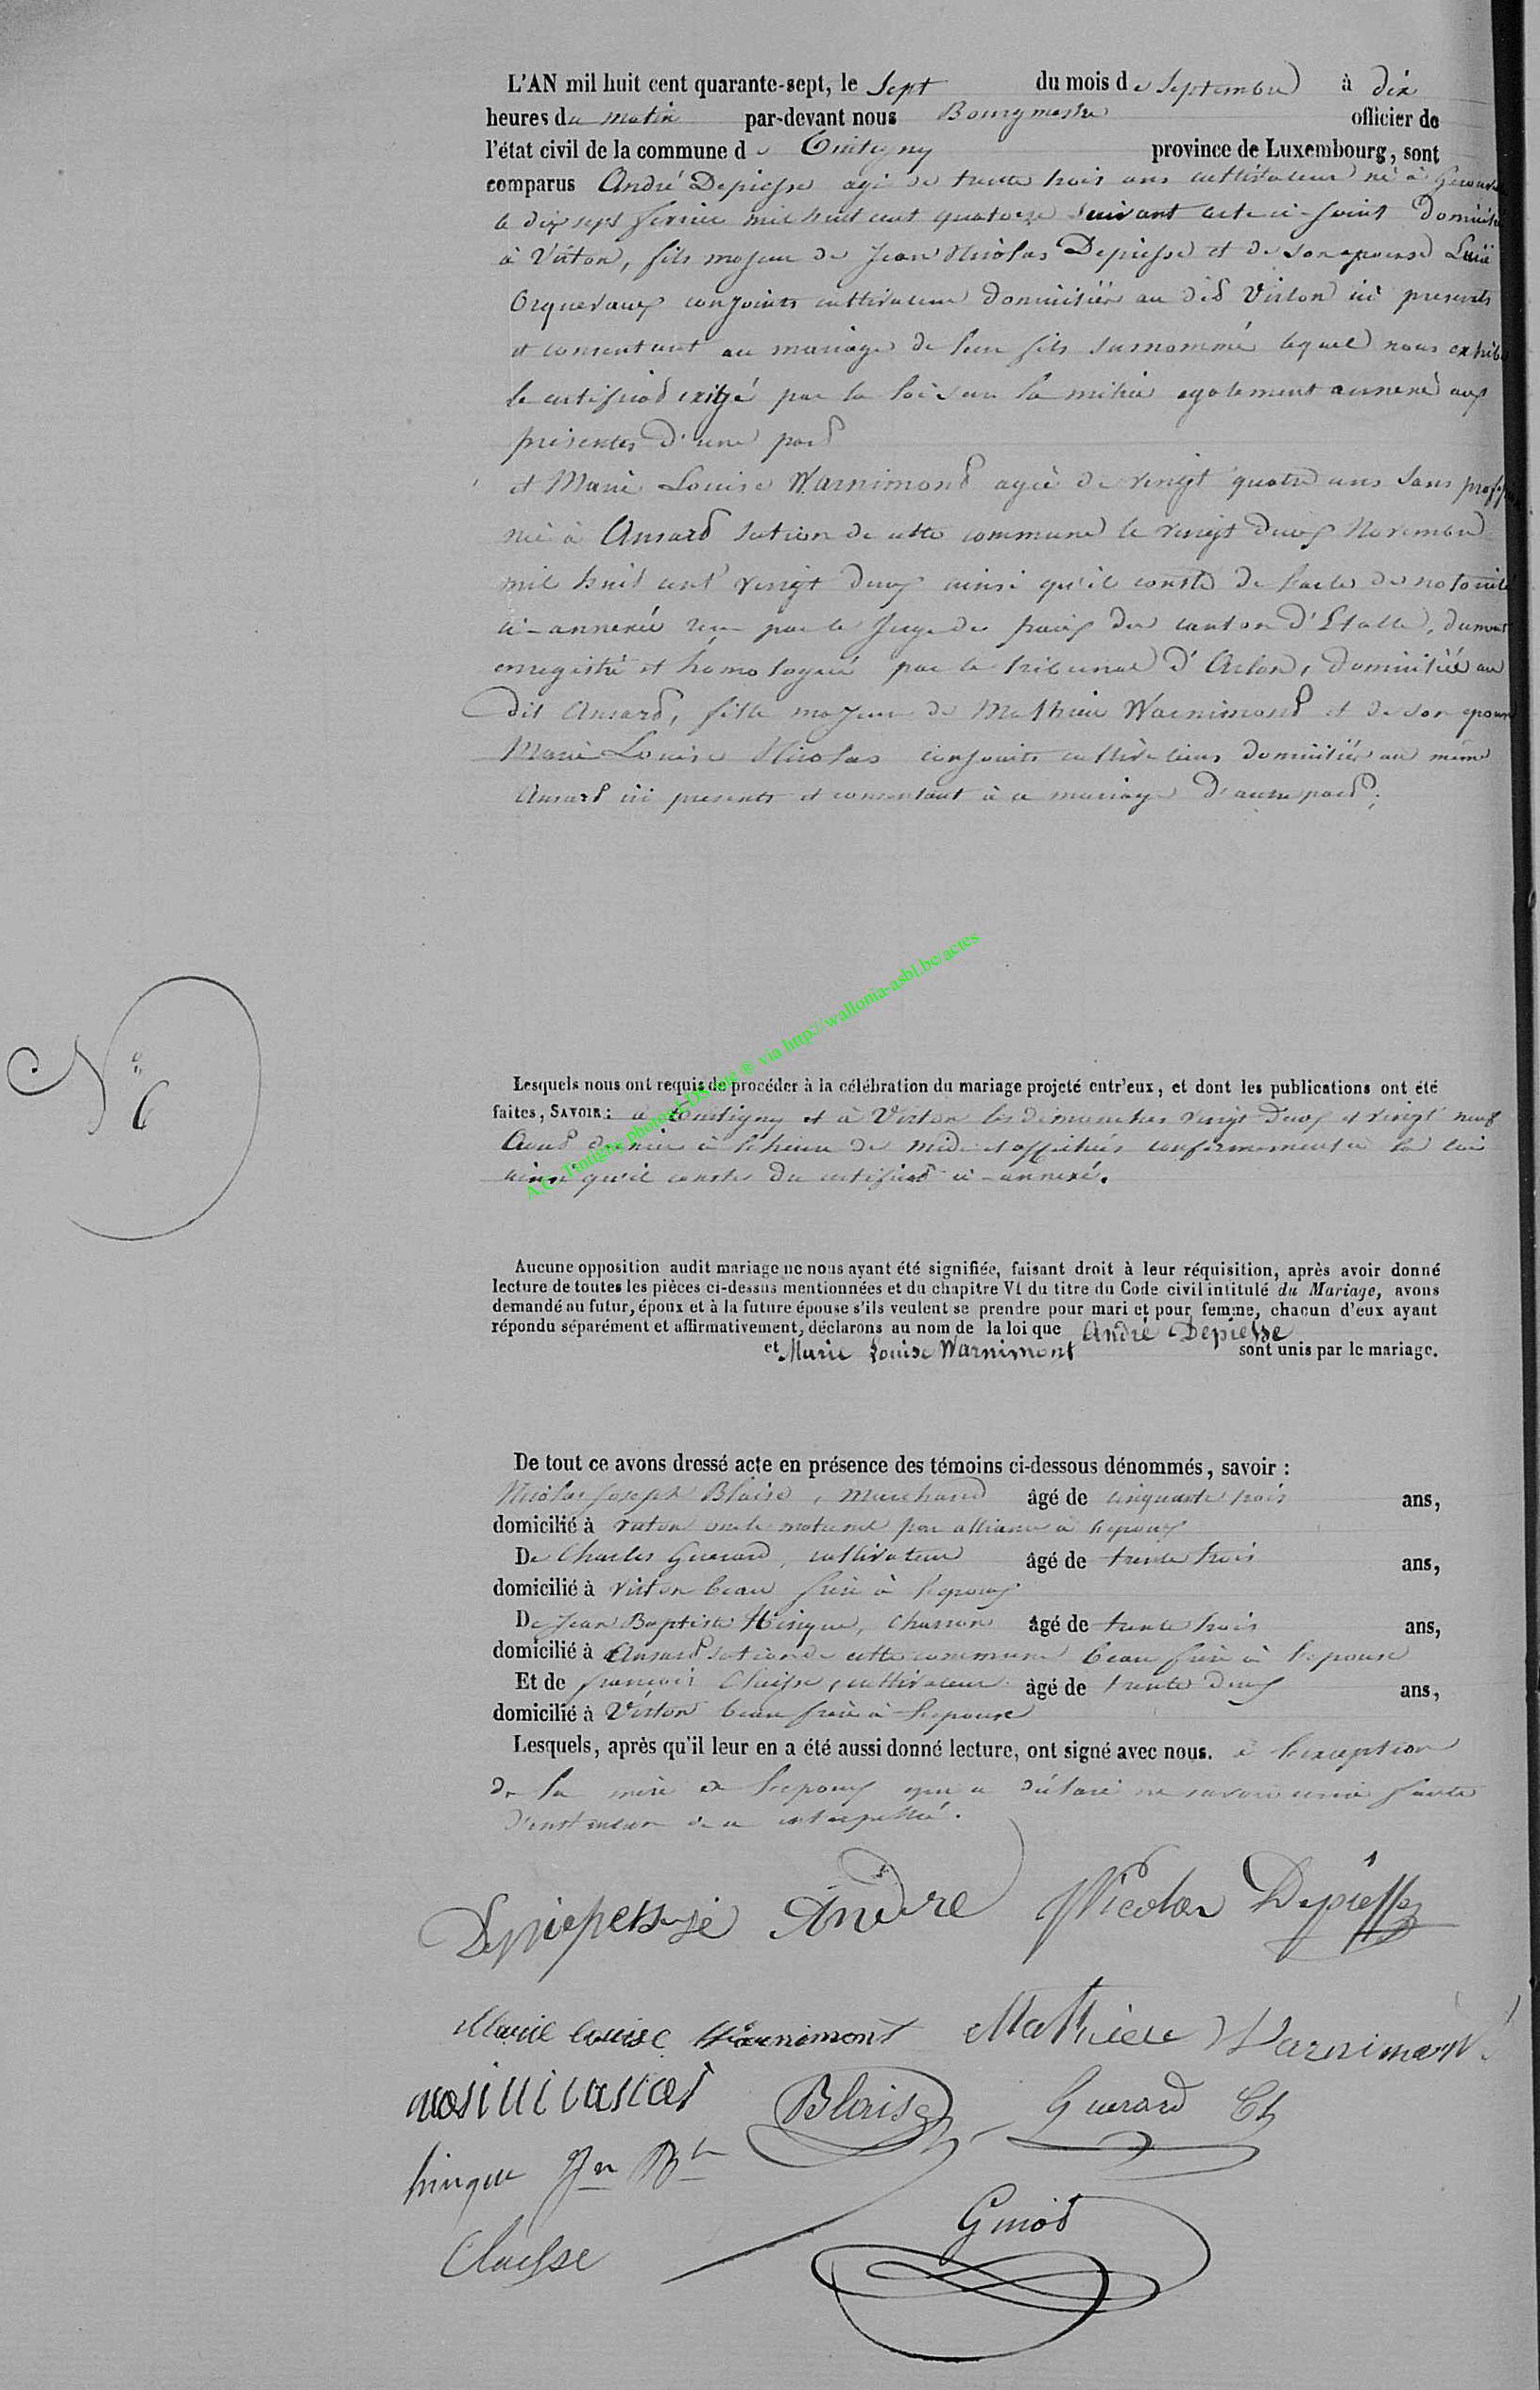 L'AN mil huit cent quarante-sept, le Sept du mois de Septembre à dix
heures du matin par-devant nous Bourgmestre officier de
l'état civil de la commune de Tintigny province de Luxembourg, sont
comparus André Depiesse agé de trente trois ans cultivateur né à
le dix sept fevrier mil huit cent quatorze suivant acte ci-joint Domicilié
à Virton, fils majeur de Jean Nicolas Depiesse et de son epouse
Orquevaux conjoints cultivateurs domiciliés au dit Virton ici presents
et consentant au mariage de leur fils surnommé lequel nous exhibe
le certificat exigé par la loi sur la milice egalement annexé aux
présentes d'une part
et Marie Louise Warnimont agée de vingt quatre ans sans profession
née à Ansart section de cette commune le vingt deux Novembre
mil huit cent vingt deux ainsi qu'il conste de l'acte de notorieté
ci-annexé recu par le Juge de paix du canton d'Etalle, dument
enregistré et homologué par le tribunal d'Arlon, domiciliée au
dit Ansart, fille majeure de Mathieu Warnimont et de son epouse
Marie Louise Nicolas conjoints cultivateurs domiciliés au même
Ansart ici presents et consentant à ce mariage d'autre part;
N° 6
Lesquels nous ont requis de procéder à la célébration du mariage projeté entr'eux, et dont les publications ont été
faites, SAVOIR: à Tintigny et à Virton les dimanches vingt deux et vingt neuf
Aout dernier à l'heure de midi et affichées conformement à la loi
ainsi qu'il conste du certificat ci-annexé.
A.C. Tintigny photo via http://wallonia-asbl.be/actes
Aucune opposition audit mariage ne nous ayant été signifiée, faisant droit à leur réquisition, après avoir donné
lecture de toutes les pièces ci-dessus mentionnées et du chapitre VI du titre du Code civil intitulé du Mariage, avons
demandé au futur, époux et à la future épouse s'ils veulent se prendre pour mari et pour femme, chacun d'eux ayant
répondu séparément et affirmativement, déclarons au nom de la loi que André Depiesse
et Marie Louise Warnimont sont unis par le mariage.
De tout ce avons dressé acte en présence des témoins ci-dessous dénommés, savoir :
Nicolas Joseph Blaise, Marchand âgé de cinquante trois ans,
domicilié à Virton oncle maternel par alliance à l'epoux
De Charles Guerard, cultivateur âgé de trente trois ans,
domicilié à Virton beau frère à l'epoux
De Jean Baptiste Hinque, charron âgé de trente trois ans,
domicilié à Ansart section de cette commune beau frère à l'epouse
Et de françois Claisse, cultivateur âgé de trente deux ans,
domicilié à Virton beau frère à l'epouse
Lesquels, après qu'il leur en a été aussi donné lecture, ont signé avec nous. à l'exception
de la mère de l'epoux qui a déclaré ne savoir ecrire faute
d'instruction de ce interpellée.
André Nicolas Depiesse
Marie louise Warnimont Mathieu Warnimont
Blaise Guerard Ch
hinque Jn Bte
Claisse